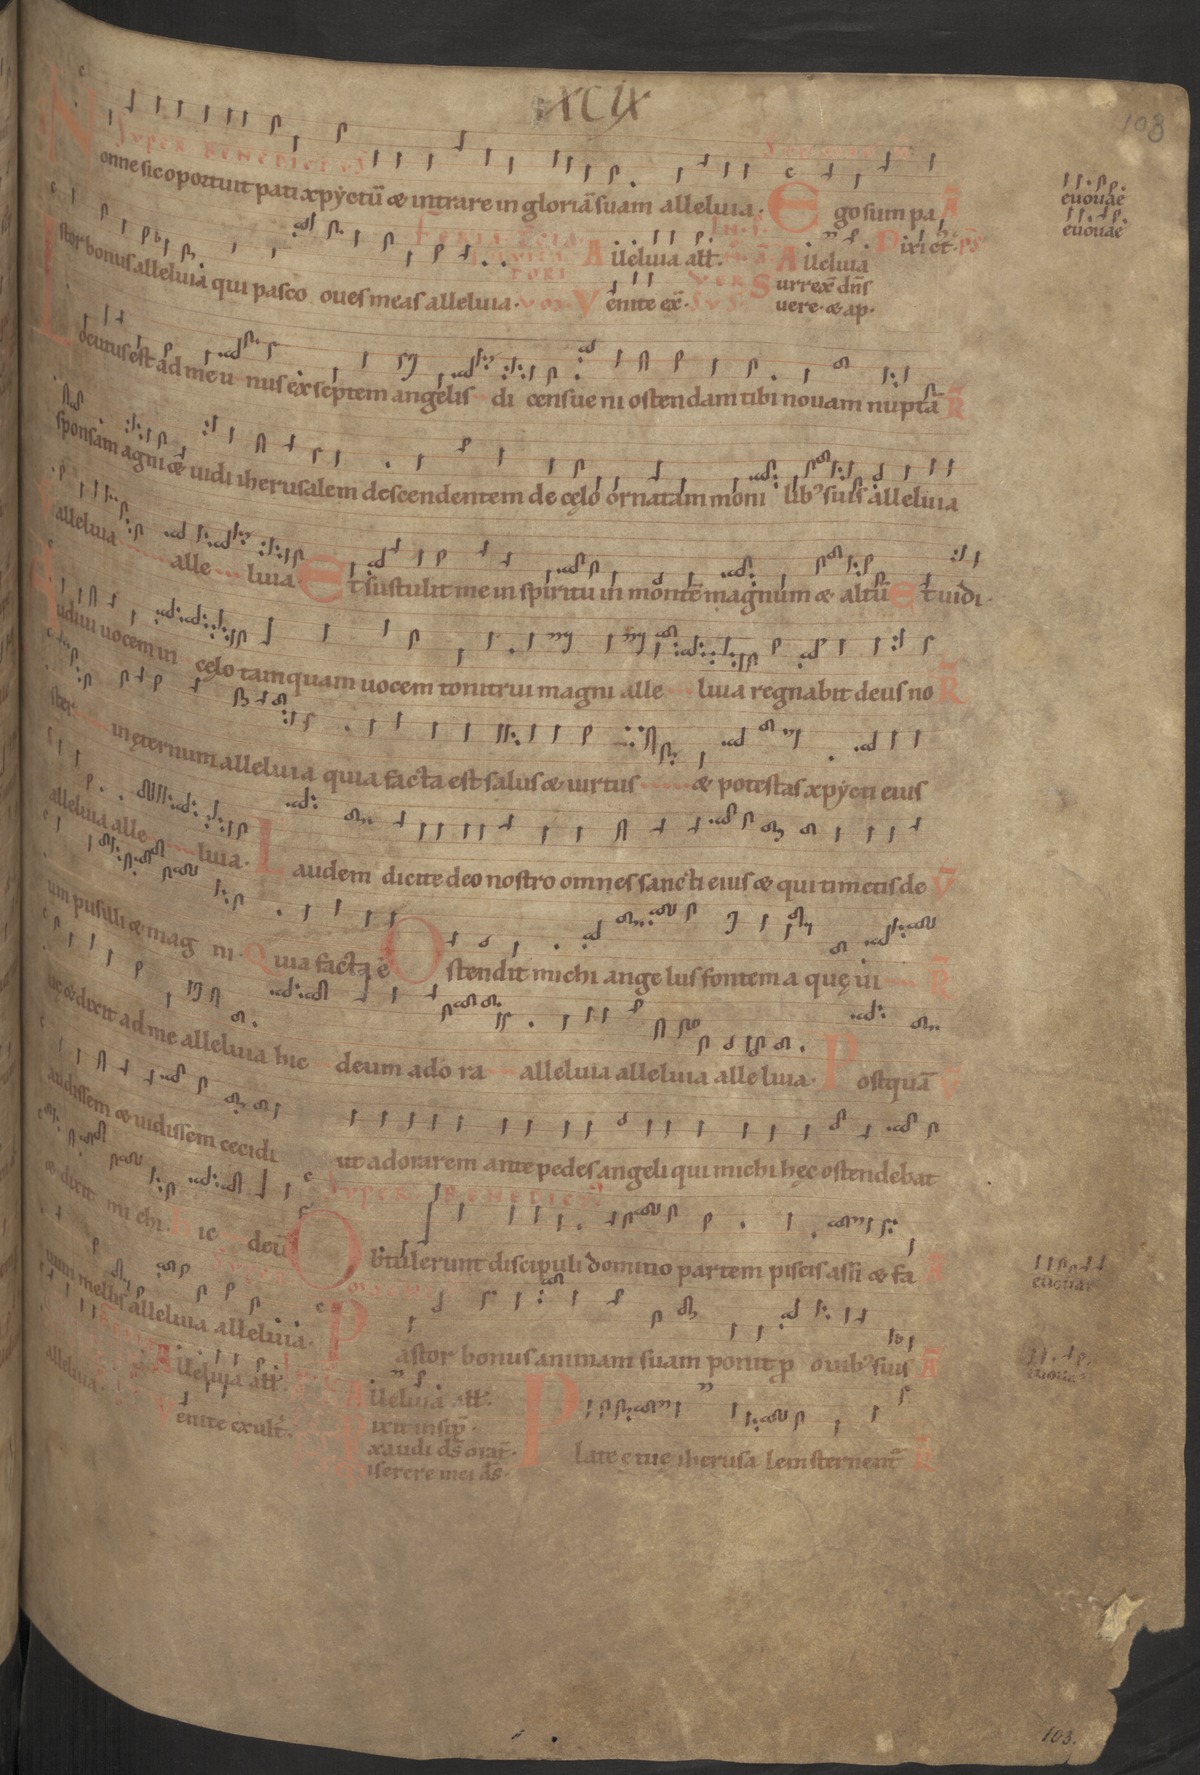 XCIX
108
SUPER BENEDICTUS
Nonne sic oportuit pati xpyctū & intrare in gloriā suam alleluia. Ego sum pa A
euouae
euouae
stor bonus alleluia qui pasco oues meas alleluia. Alleluia all. Alleluia Dixit et ps
Venite ex. Surrex dns
uere & ap.
Locutus est ad me u nus ex septem angelis di cens ue ni ostendam tibi nouam nuptā R
sponsam agni & uidi iherusalem descendentem de cęlo ornatam moni lib⁹ suis alleluia
alleluia alle luia Et sustulit me in spiritu in montē magnum & altū Et uidi.
Audiui uocem in cęlo tamquam uocem tonitrui magni alle luia regnabit deus no R
ster in ęternum alleluia quia facta est salus & uirtus & potestas xpycti eius
alleluia alle luia. Laudem dicite deo nostro omnes sancti eius & qui timetis de V
um pusilli & mag ni. Quia facta ē Ostendit michi ange lus fontem a quę ui R
uę & dixit ad me alleluia hic deum ado ra alleluia alleluia alle luia. Postquā V
audissem & uidissem cecidi ut adorarem ante pedes angeli qui michi hęc ostendebat
& dixit mi chi. hic deū SUPER BENEDICT⁹
Obtulerunt discipuli domino partem piscis assi & fa A
euouae
uum mellis alleluia alleluia. Pastor bonus animam suam ponit p ouib⁹ suis A
euouae
alleluia. Alleluia all. Alleluia all.
Venite exult. ixit insip.
xaudi ds orat.
iserere mei ds.
Plate e tue iherusa lem sternent R
103.